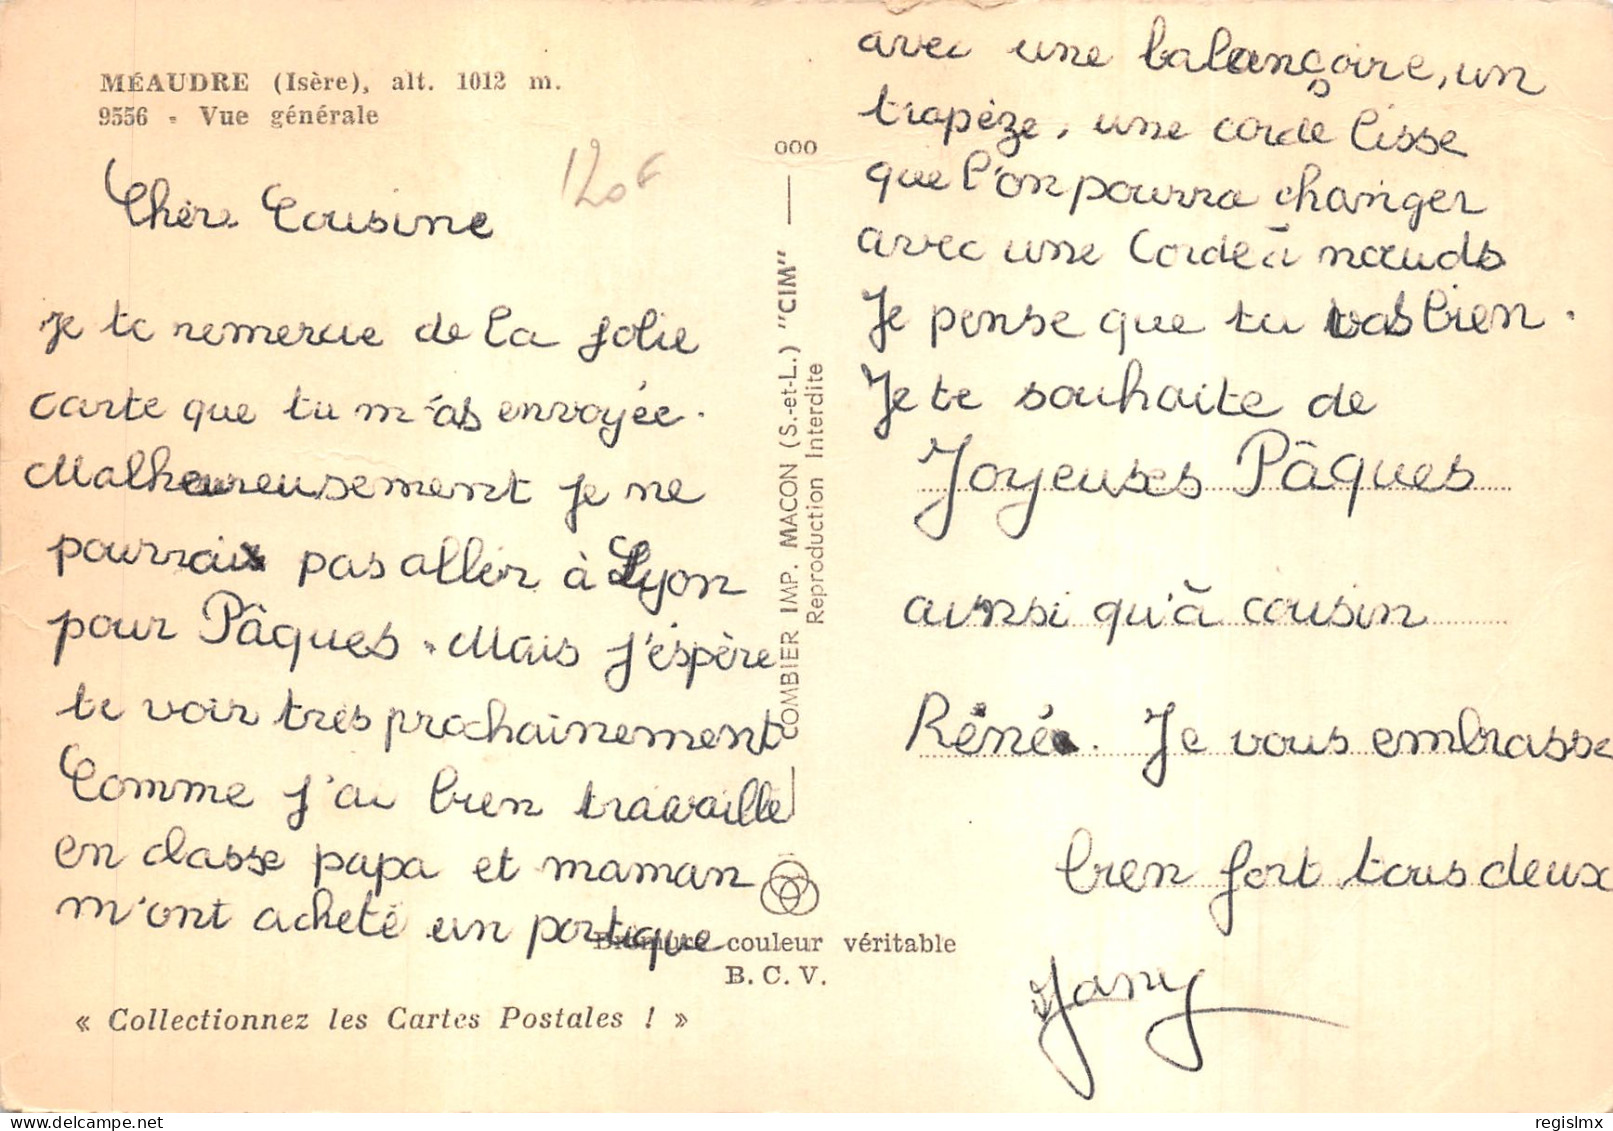 MÉAUDRE (Isère), alt. 1012 m.
9556 - Vue générale
120F
Chère Cousine
je te remercie de la jolie
carte que tu m'as envoyée.
Malheureusement je ne
pourrais pas aller à Lyon
pour Pâques. Mais j'éspère
te voir très prochainement
Comme j'ai bien travaillé
en classe papa et maman
m'ont acheté un portique
Bromure couleur véritable
B. C. V.
« Collectionnez les Cartes Postales ! »
000
COMBIER IMP. MACON (S.-et-L.) "CIM"
Reproduction Interdite
avec une balançoire, un
trapèze, une corde lisse
que l'on pourra changer
avec une Corde à nœuds
Je pense que tu vas bien.
Je te souhaite de
Joyeuses Pâques
ainsi qu'à cousin
Réné. Je vous embrasse
bien fort tous deux
Jany
regislmx